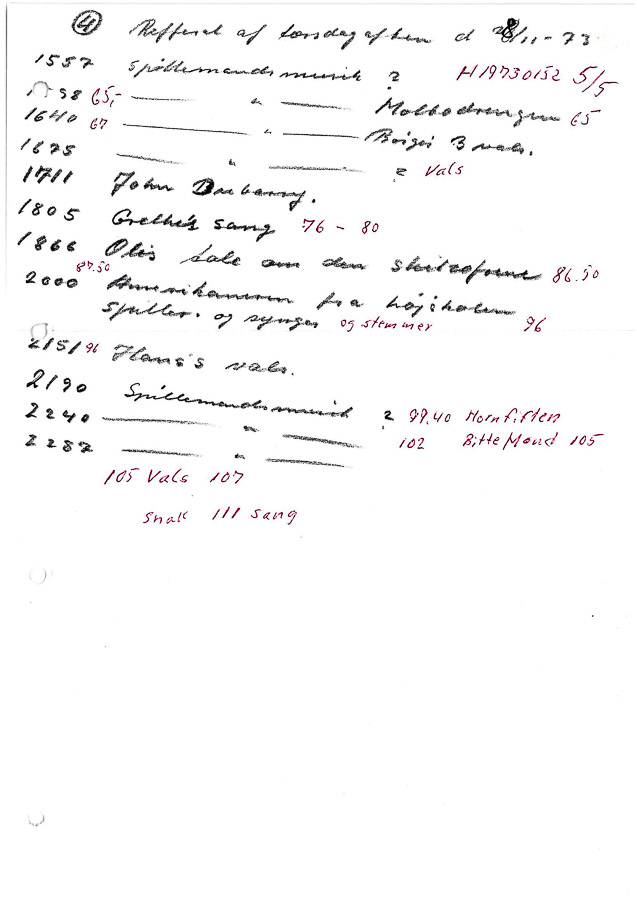 4 Refferat af torsdag aften d 28/11-73
1557 Spillemandsmusik ? H19730152 5/5
1598 65,- —— " —— Molbodrengen 65
1640 67 —— " —— Börges 3 vals.
1675 —— " —— ? Vals
1711 John Dubarry.
1805 Grethe's sang 76 - 80
1866 Olis tale om den 86.50
87.50
2000 Amerikaneren fra højskolen
spiller. og synger og stemmer 96
2151 96 Hans's vals.
2190 Spillemandsmusik ? 99.40 Hornfiften
2240 —— " —— 102 Bitte Mand 105
2287 —— " ——
105 Vals 107
Snak 111 sang